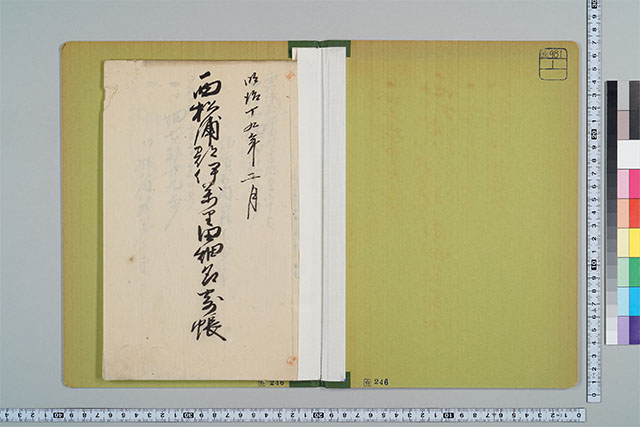 明治十九年二月
西松浦郡伊万里田畑名寄帳
981
1
246
246